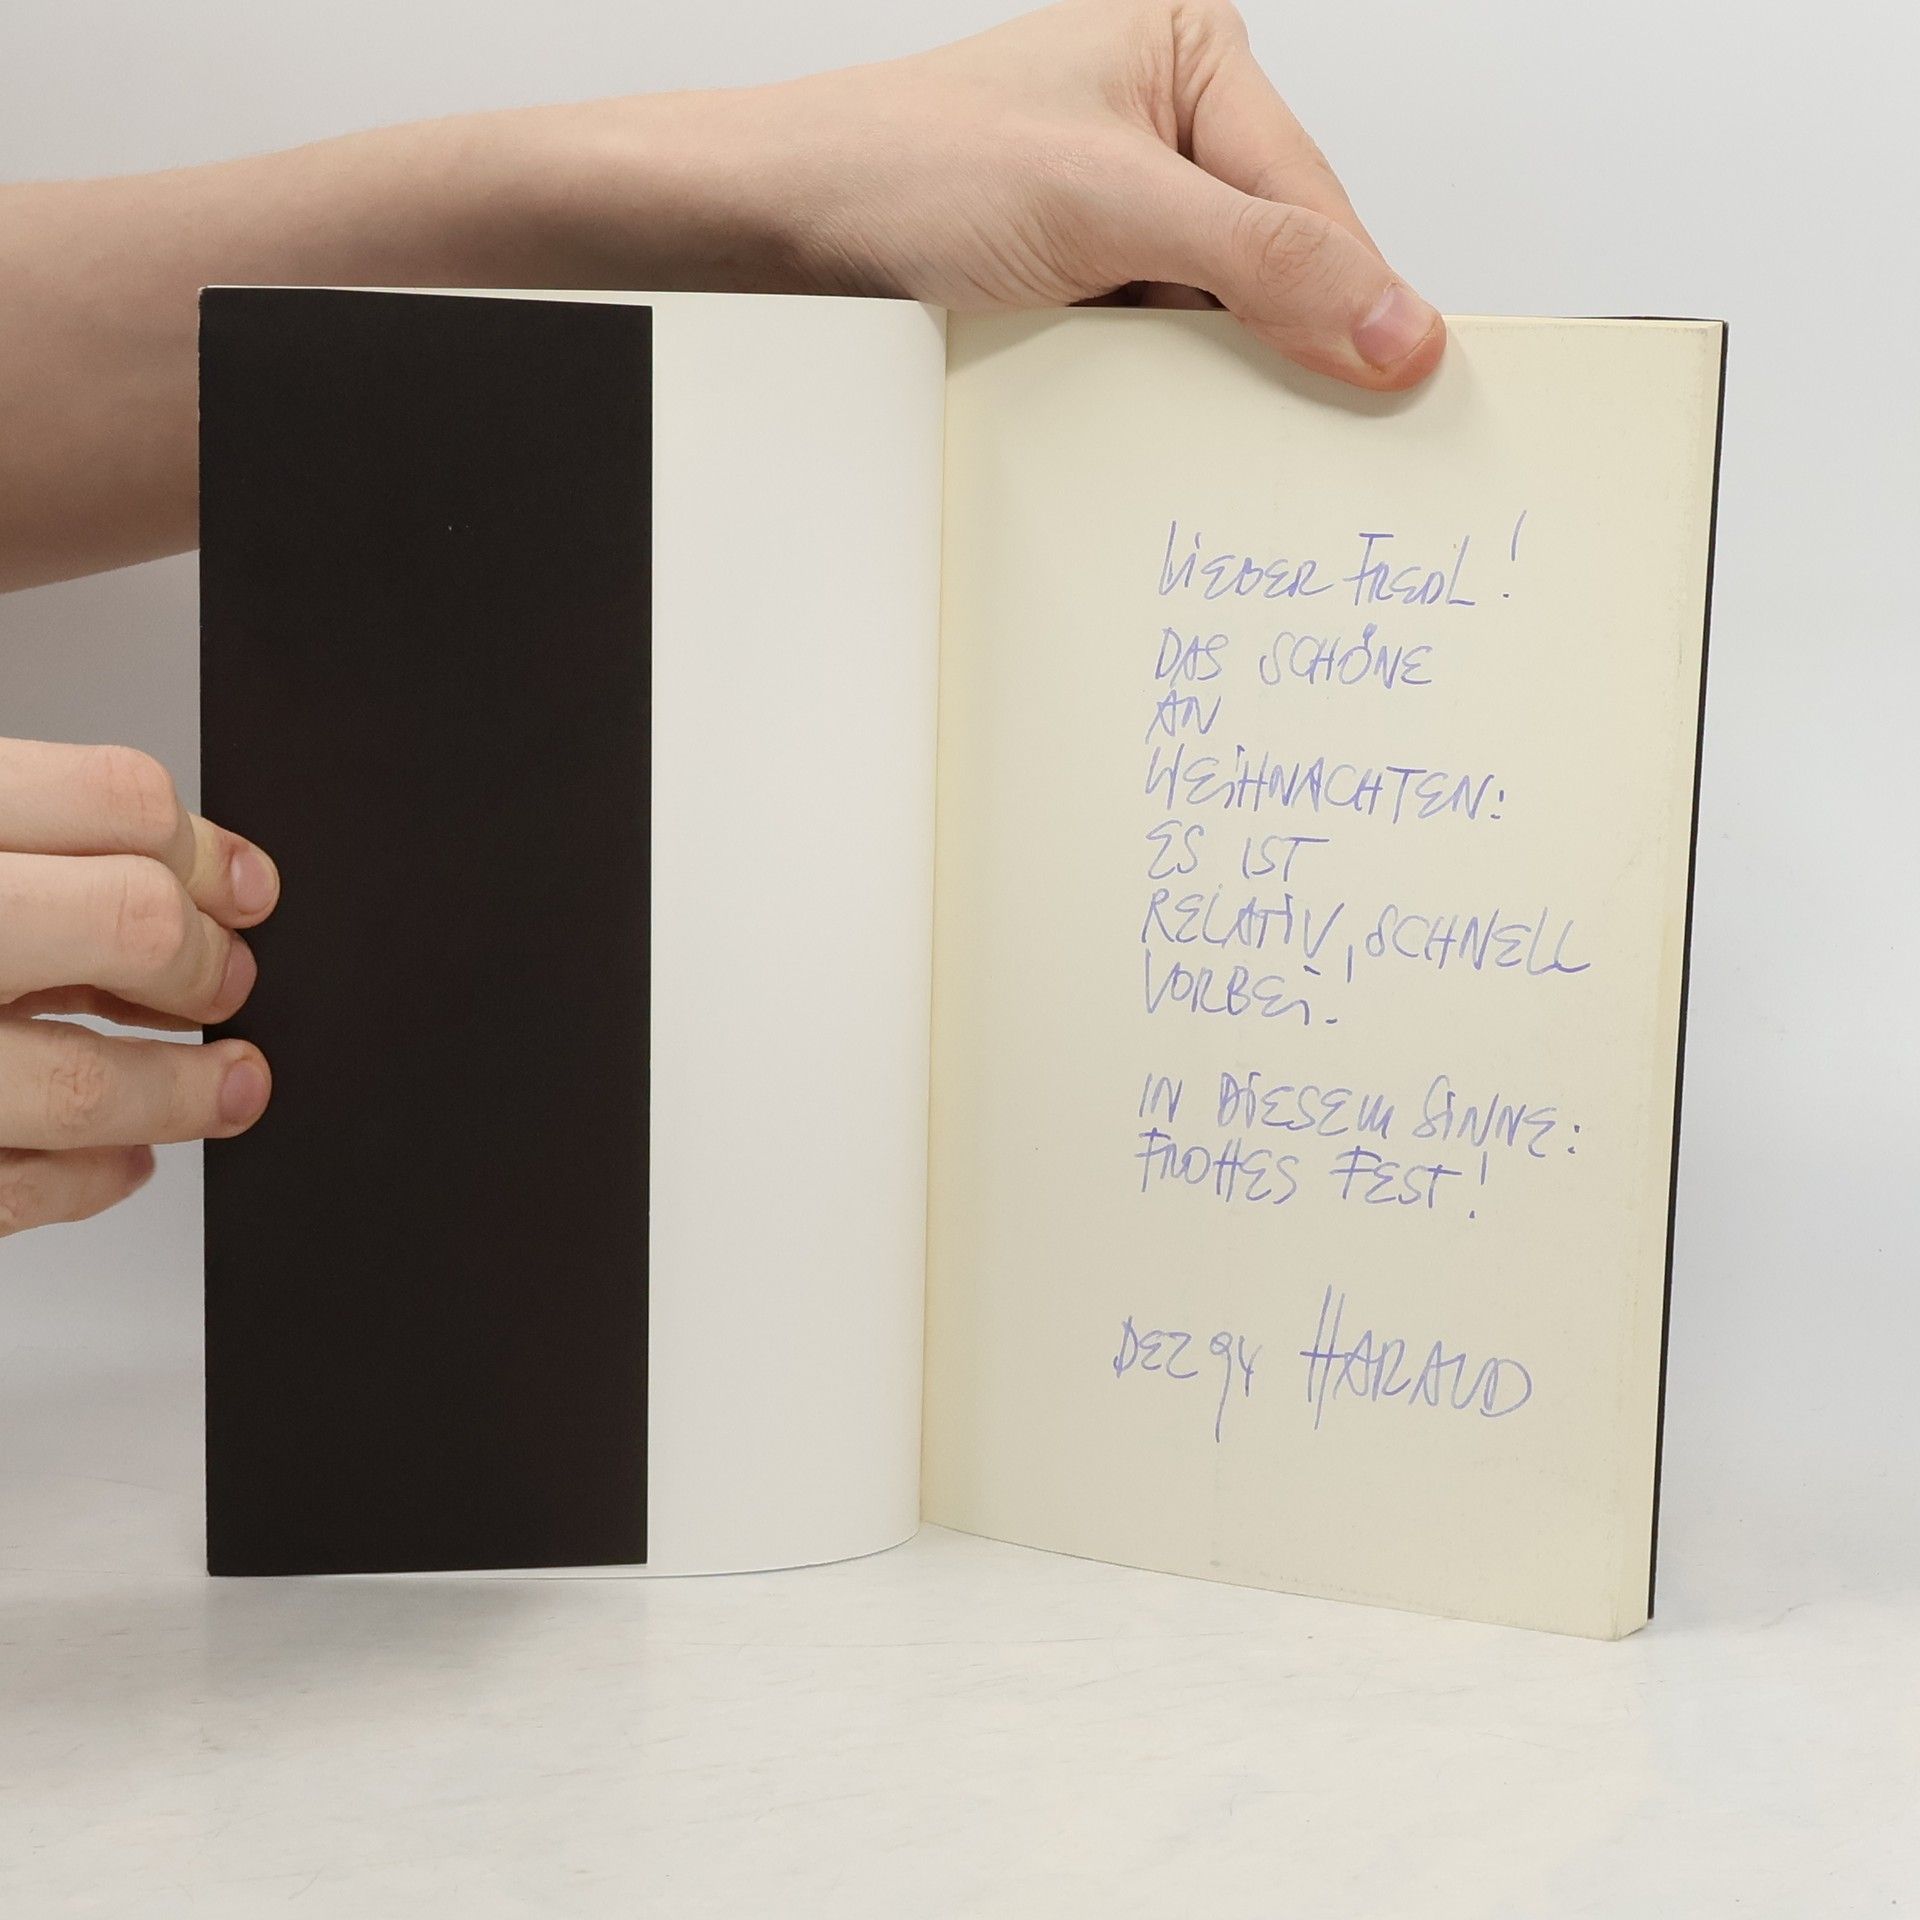 LIEBER FREDL!
DAS SCHÖNE
AN
WEIHNACHTEN:
ES IST
RELATIV SCHNELL
VORBEI!
IN DIESEM SINNE:
FROHES FEST!
DEZ 94 HARALD